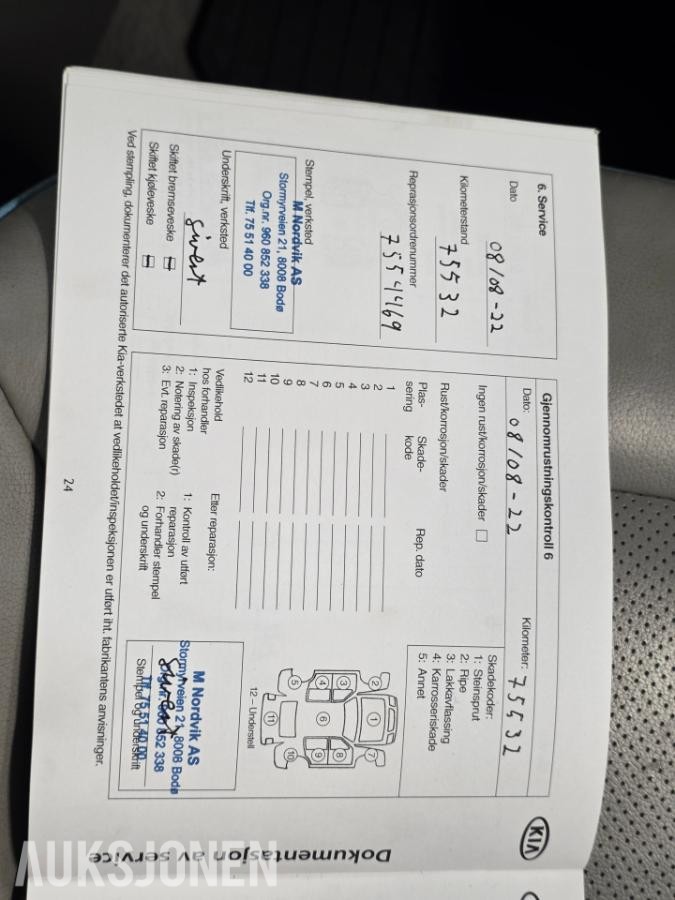 Dokumentasjon av service
KIA
6. Service
Dato 08/08-22
Kilometerstand 75532
Reprasjonsordrenummer 7554469
Stempel, verksted
M Nordvik AS
Stormyrveien 21, 8008 Bodø
Org.nr. 960 852 338
Tlf. 75 51 40 00
Underskrift, verksted
Skiftet bremsevæske
Skiftet kjølevæske
Gjennomrustningskontroll 6
Dato: 08/08-22 Kilometer: 75532
Ingen rust/korrosjon/skader
Rust/korrosjon/skader
Plas- Skade- Rep. dato
sering kode
1
2
3
4
5
6
7
8
9
10
11
12
Skadekoder:
1: Steinsprut
2: Ripe
3: Lakkavflassing
4: Karrosseriskade
5: Annet
1
2
3
4
5
6
7
8
9
10
11
12 – Understell
Vedlikehold
hos forhandler
1: Inspeksjon
2: Notering av skade(r)
3: Evt. reparasjon
Etter reparasjon:
1: Kontroll av utført
reparasjon
2: Forhandler stempel
og underskrift
M Nordvik AS
Stormyrveien 21, 8008 Bodø
Org.nr. 960 852 338
Tlf. 75 51 40 00
Stempel og underskrift
Ved stempling, dokumenterer det autoriserte Kia-verkstedet at vedlikeholdet/inspeksjonen er utført iht. fabrikantens anvisninger.
24
AUKSJONEN